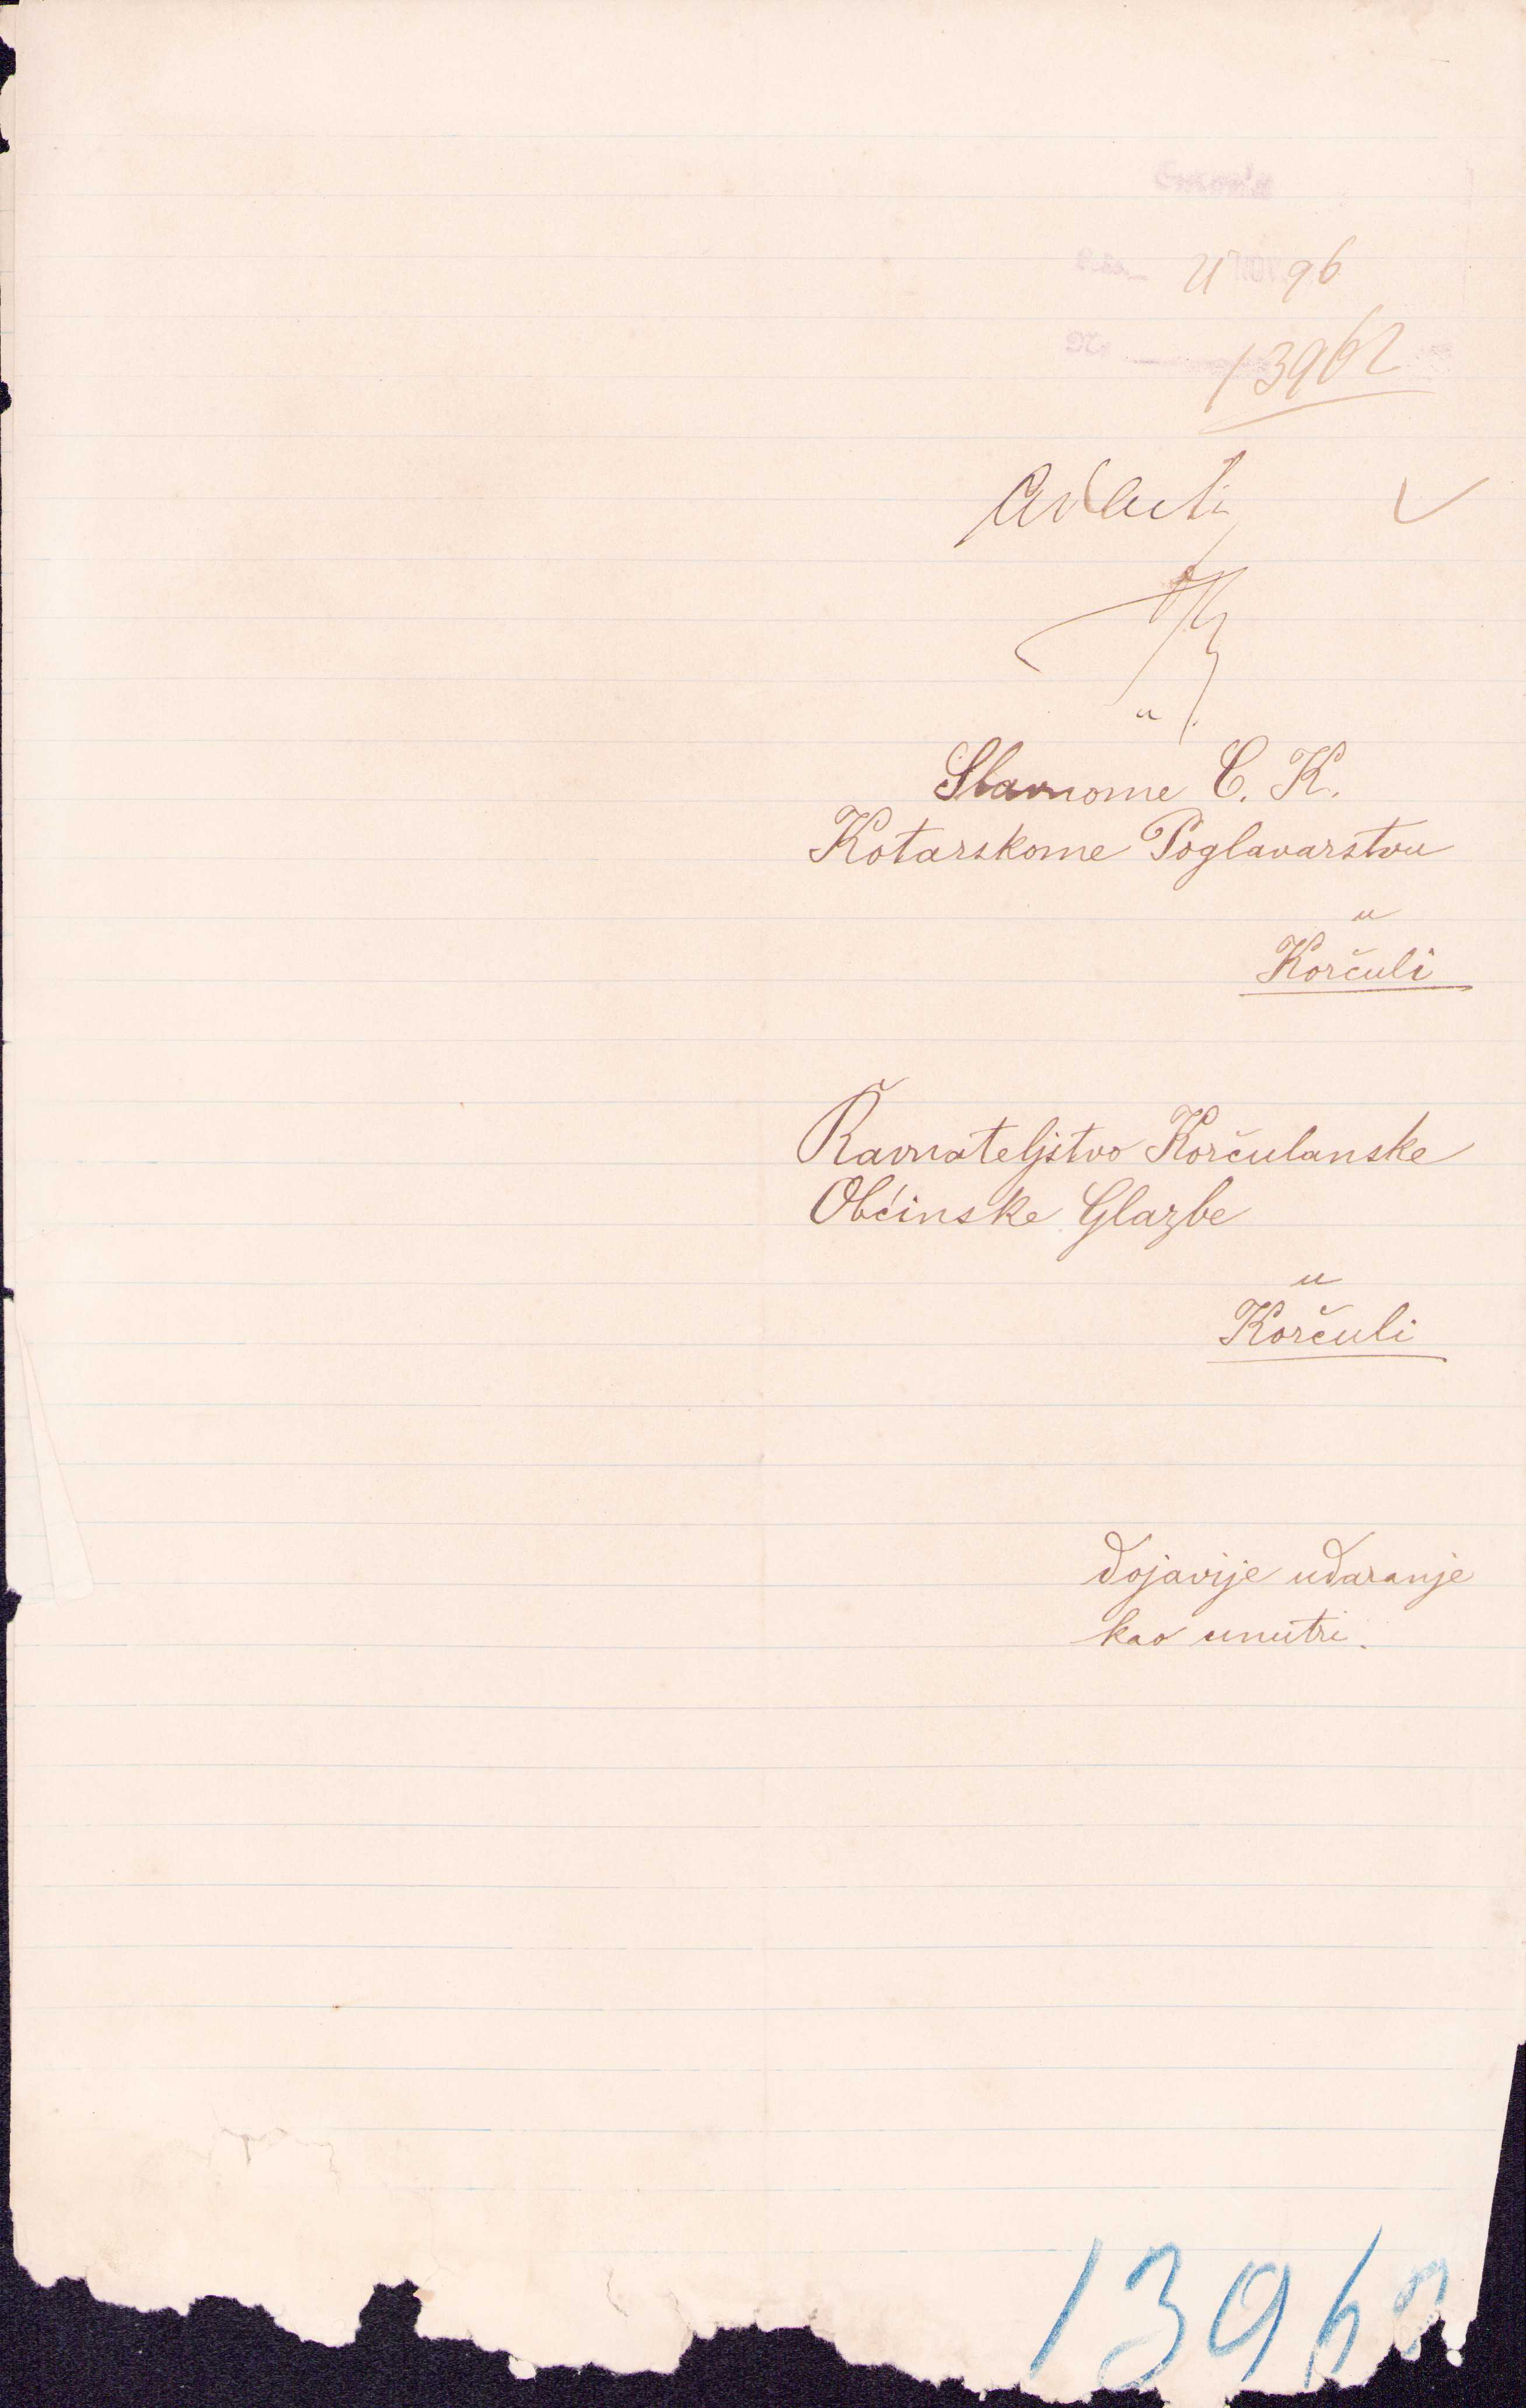 96
13962
ad acta
Slavnome C. K.
Kotarskome Poglavarstvu
u
Korčuli
Ravnateljstvo Korčulanske
Občinske Glazbe
u
Korčuli
dojavije udaranje
kao unutri.